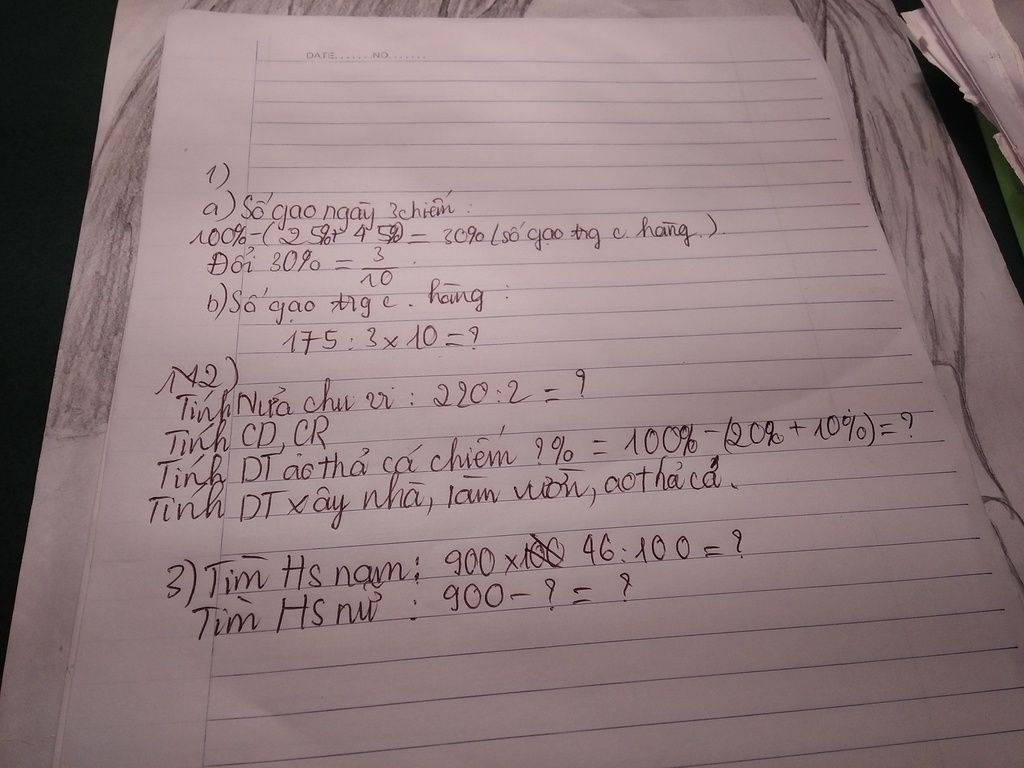 DATE....... NO.......
1)
a) Số gạo ngày 3 chiếm :
100% - ( 25% + 45%) = 30% (số gạo trg c. hàng.)
Đổi 30% = 3/10 .
b) Số gạo trg c. hàng :
175 : 3 x 10 = ?
2)
Tính Nửa chu vi : 220 : 2 = ?
Tính CD, CR
Tính DT ao thả cá chiếm ?% = 100% - (20% + 10%) = ?
Tính DT xây nhà, làm vườn, ao thả cá.
3) Tìm Hs nam : 900 x 46 : 100 = ?
Tìm Hs nữ : 900 - ? = ?